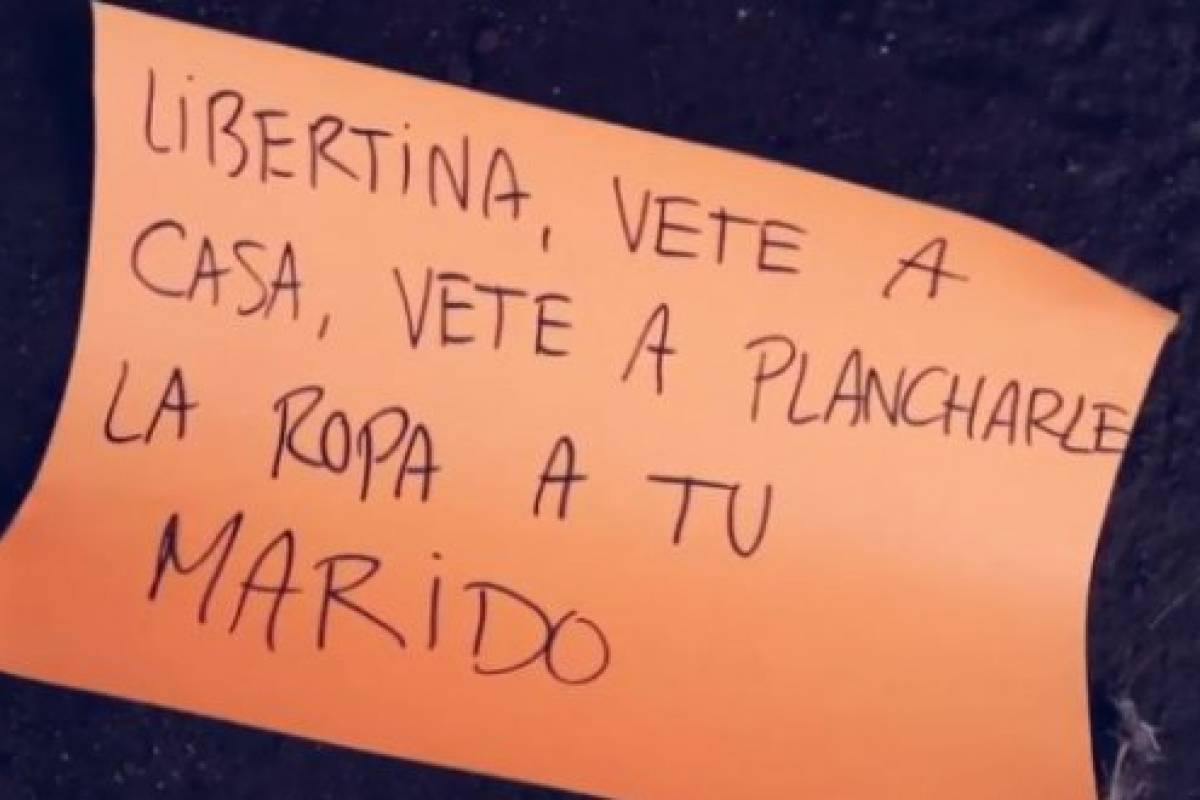 LiBERTiNA, VETE A
CASA, VETE A PLANCHARLE
LA ROPA A TU
MARiDO